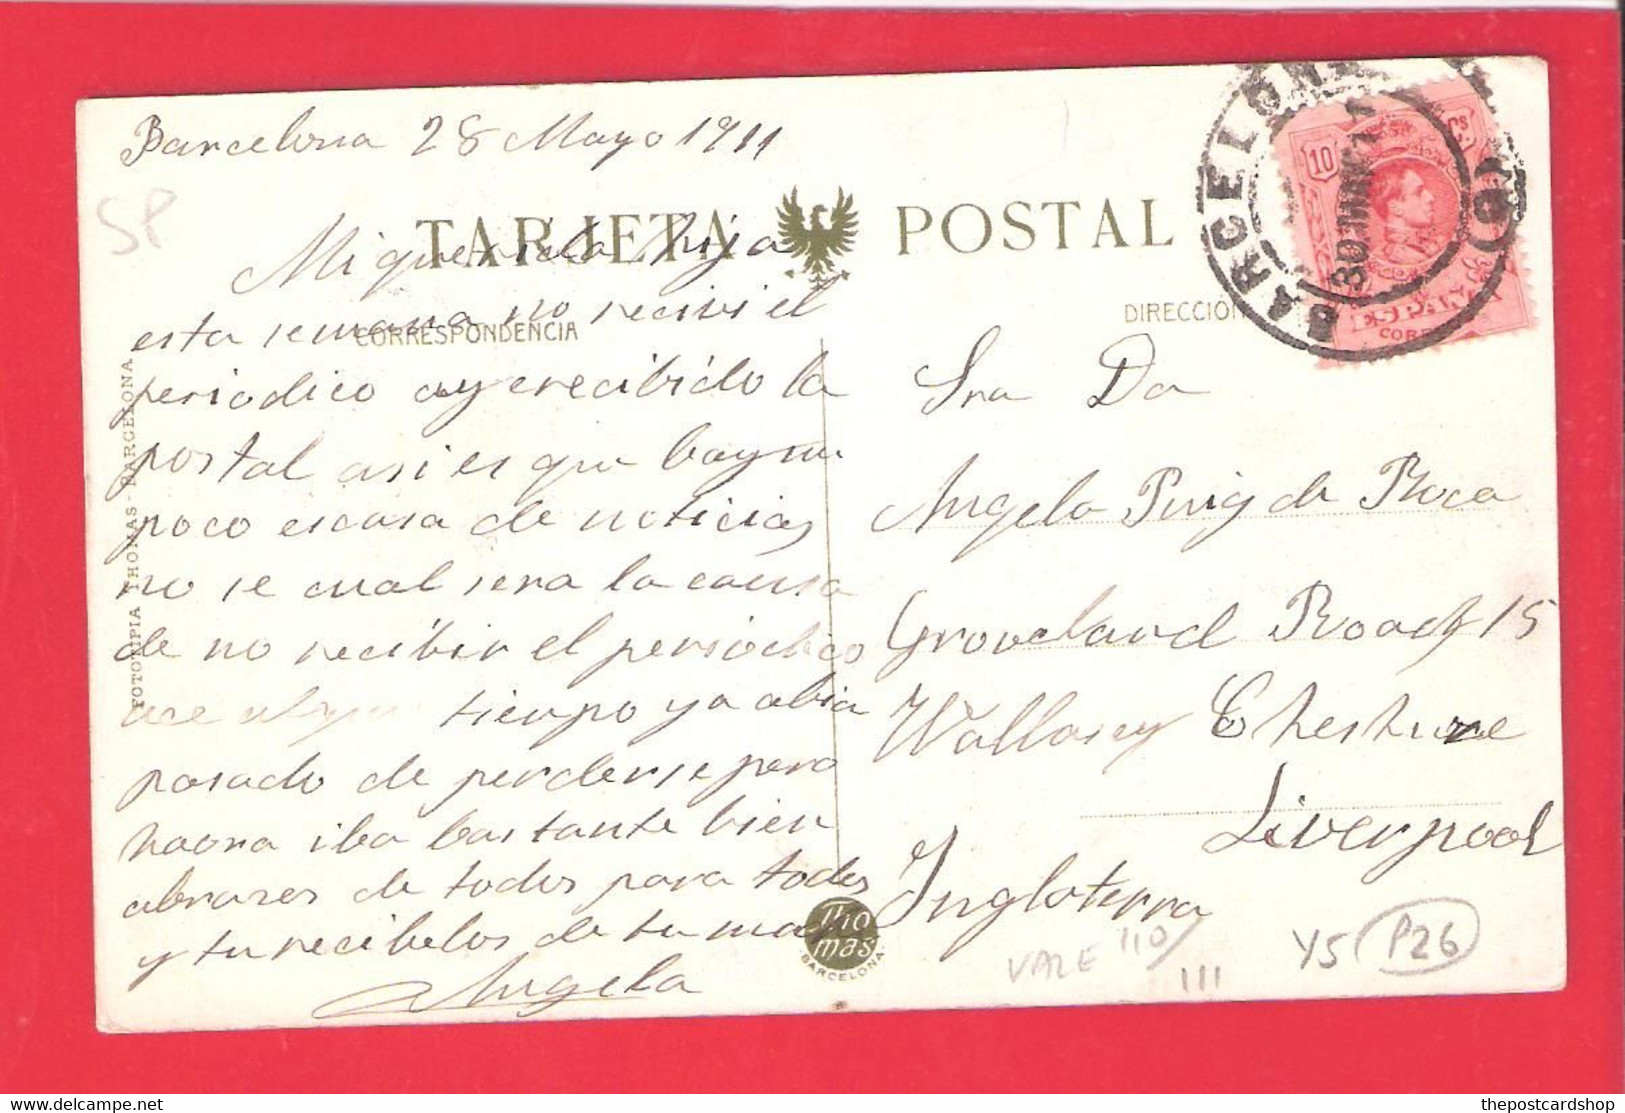 Barcelona 28 Mayo 1911
SP
TARJETA POSTAL
Mi querida hija
esta semana no recivi el
CORRESPONDENCIA
periodico ayer recibido la
postal asi es que voy un
poco escasa de noticias
no se cual sera la causa
de no recibir el periodico
tiempo ya abia
pasado de perderse pero
haora iba bastante bien
abrazos de todos para todos
y tu recibelos de tu ma
Angela
FOTOTIPIA THOMAS - BARCELONA
Thomas
BARCELONA
BARCELONA
10 Cs
CORREOS
DIRECCIÓN
Sra Da
Angela Puig de Roca
Groveland Road 15
Wallasey Cheshire
Liverpool
Inglaterra
VALE 110/
111
Y5 P26
thepostcardshop